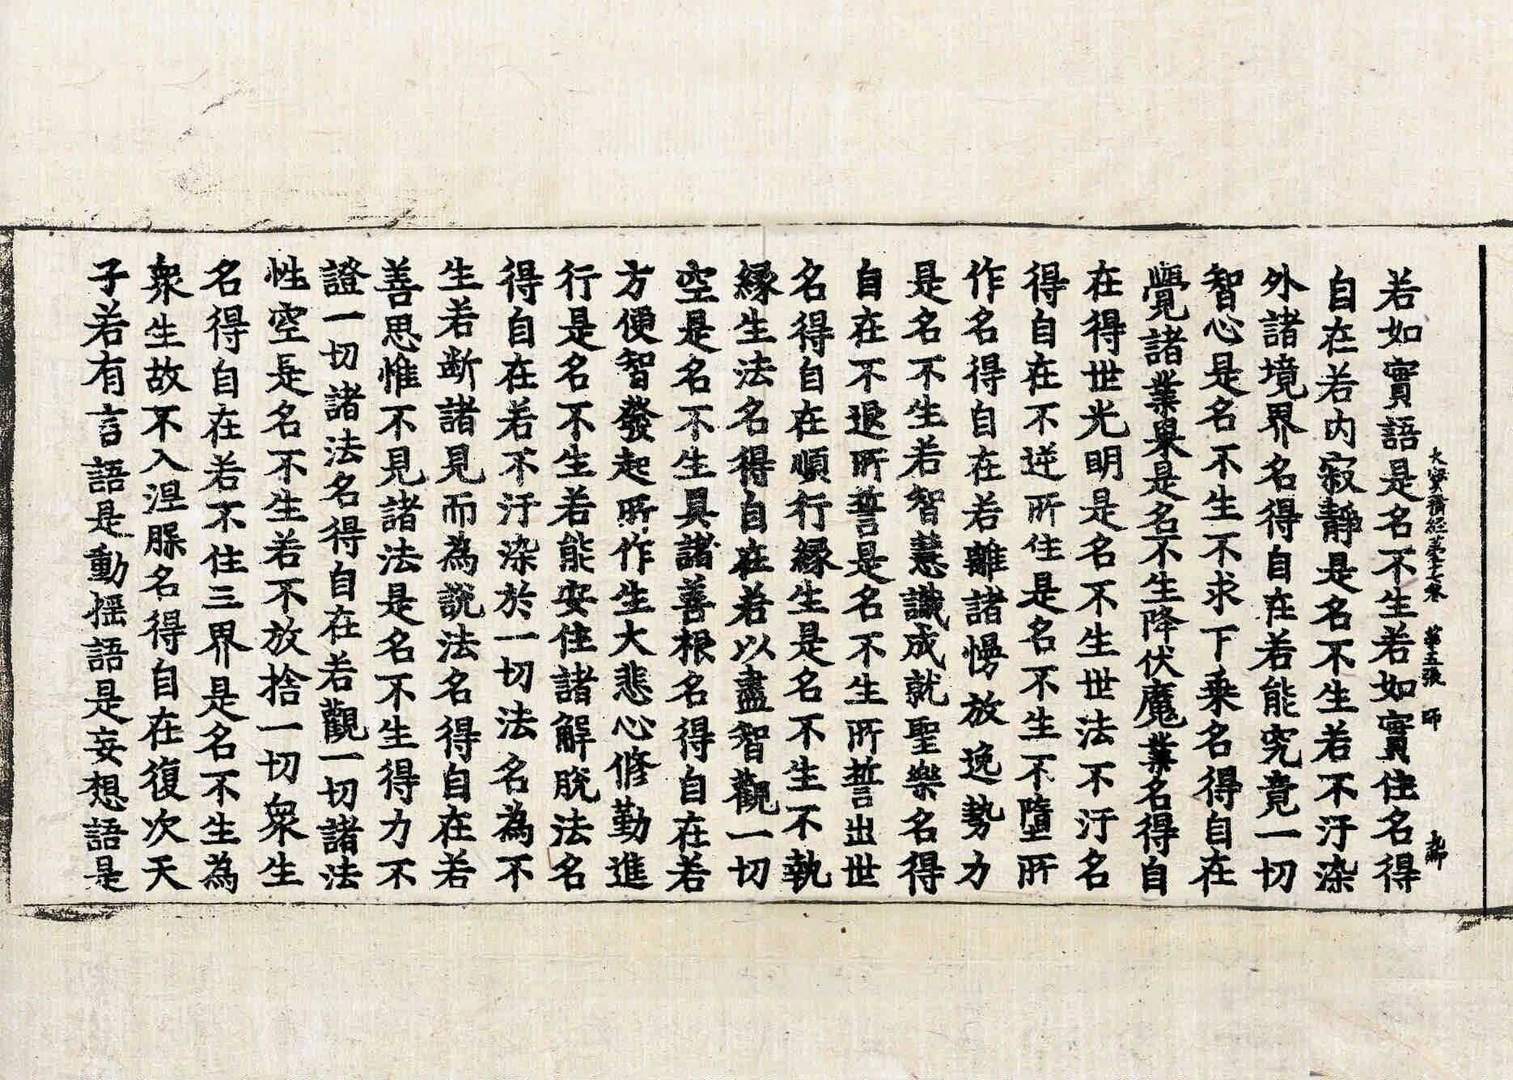 大寶積經第八十七卷 第五張 師
若如實語是名不生若如實住名得
自在若内寂靜是名不生若不汙染
外諸境界名得自在若能究竟一切
智心是名不生不求下乗名得自在
覺諸業果是名不生降伏魔業名得自
在得世光明是名不生世法不汙名
得自在不逆所住是名不生不墮所
作名得自在若離諸慢放逸勢力
是名不生若智慧識成就聖樂名得
自在不退所誓是名不生所誓出世
名得自在順行縁生是名不生不執
縁生法名得自在若以盡智觀一切
空是名不生具諸善根名得自在若
方便智發起所作生大悲心修勤進
行是名不生若能安住諸解脫法名
得自在若不汙染於一切法名為不
生若断諸見而為說法名得自在若
善思惟不見諸法是名不生得力不
證一切諸法名得自在若觀一切諸法
性空是名不生若不放捨一切衆生
名得自在若不住三界是名不生為
衆生故不入涅槃名得自在復次天
子若有言語是動揺語是妄想語是